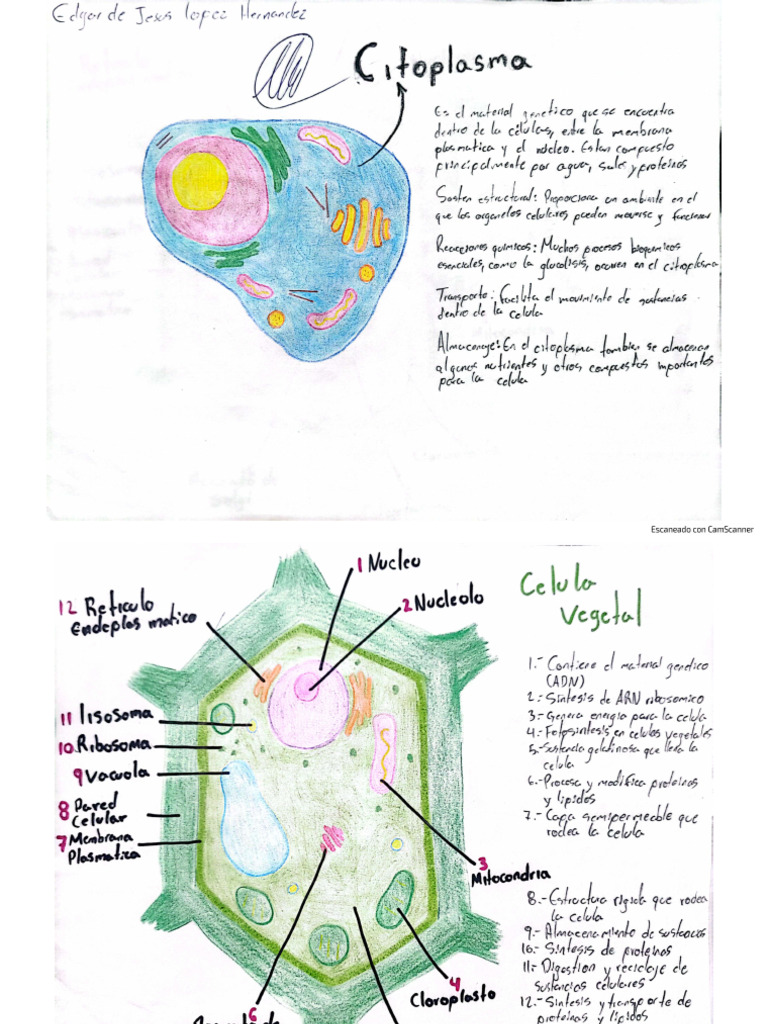 Edgar de Jesus Lopez Hernandez
Citoplasma
Es el material genetico que se encuentra
dentro de la células, entre la membrana
plasmatica y el núcleo. Estan compuesto
principalmente por agua, sales y proteinas
Sosten estructural: Proporciona un ambiente en el
que los organelos celulares pueden moverse y funcionar
Reacciones quimicas: Muchos procesos bioquimicos
esenciales, como la glucolisis, ocurren en el citoplasma
Transporte: Facilita el movimiento de sustancias
dentro de la celula
Almacenaje: En el citoplasma tambien se almacenan
algunos nutrientes y otros compuestos importantes
para la celula
Escaneado con CamScanner
1 Nucleo
2 Nucleolo
12 Reticulo
Endeplas matico
11 lisosoma
10. Ribosoma
9 Vacuola
8 Pared
Celular
7 Membrana
Plasmatica
3
Mitocondria
4
Cloroplasto
6
Celula
Vegetal
1.- Contiene el material genetico
(ADN)
2.- Sintesis de ARN ribosomico
3.- Genera energia para la celula
4.- Fotosintesis en celulas vegetales
5.- Sustancia gelatinosa que llena la
celula
6.- Procesa y modifica proteinas
y lipidos
7.- Capa semipermeable que
rodea la celula
8.- Estructura rigida que rodea
la celula
9.- Almacenamiento de sustancias
10.- Sintesis de proteinas
11.- Digestion y reciclaje de
sustancias celulares
12.- Sintesis y transporte de
proteinas y lipidos